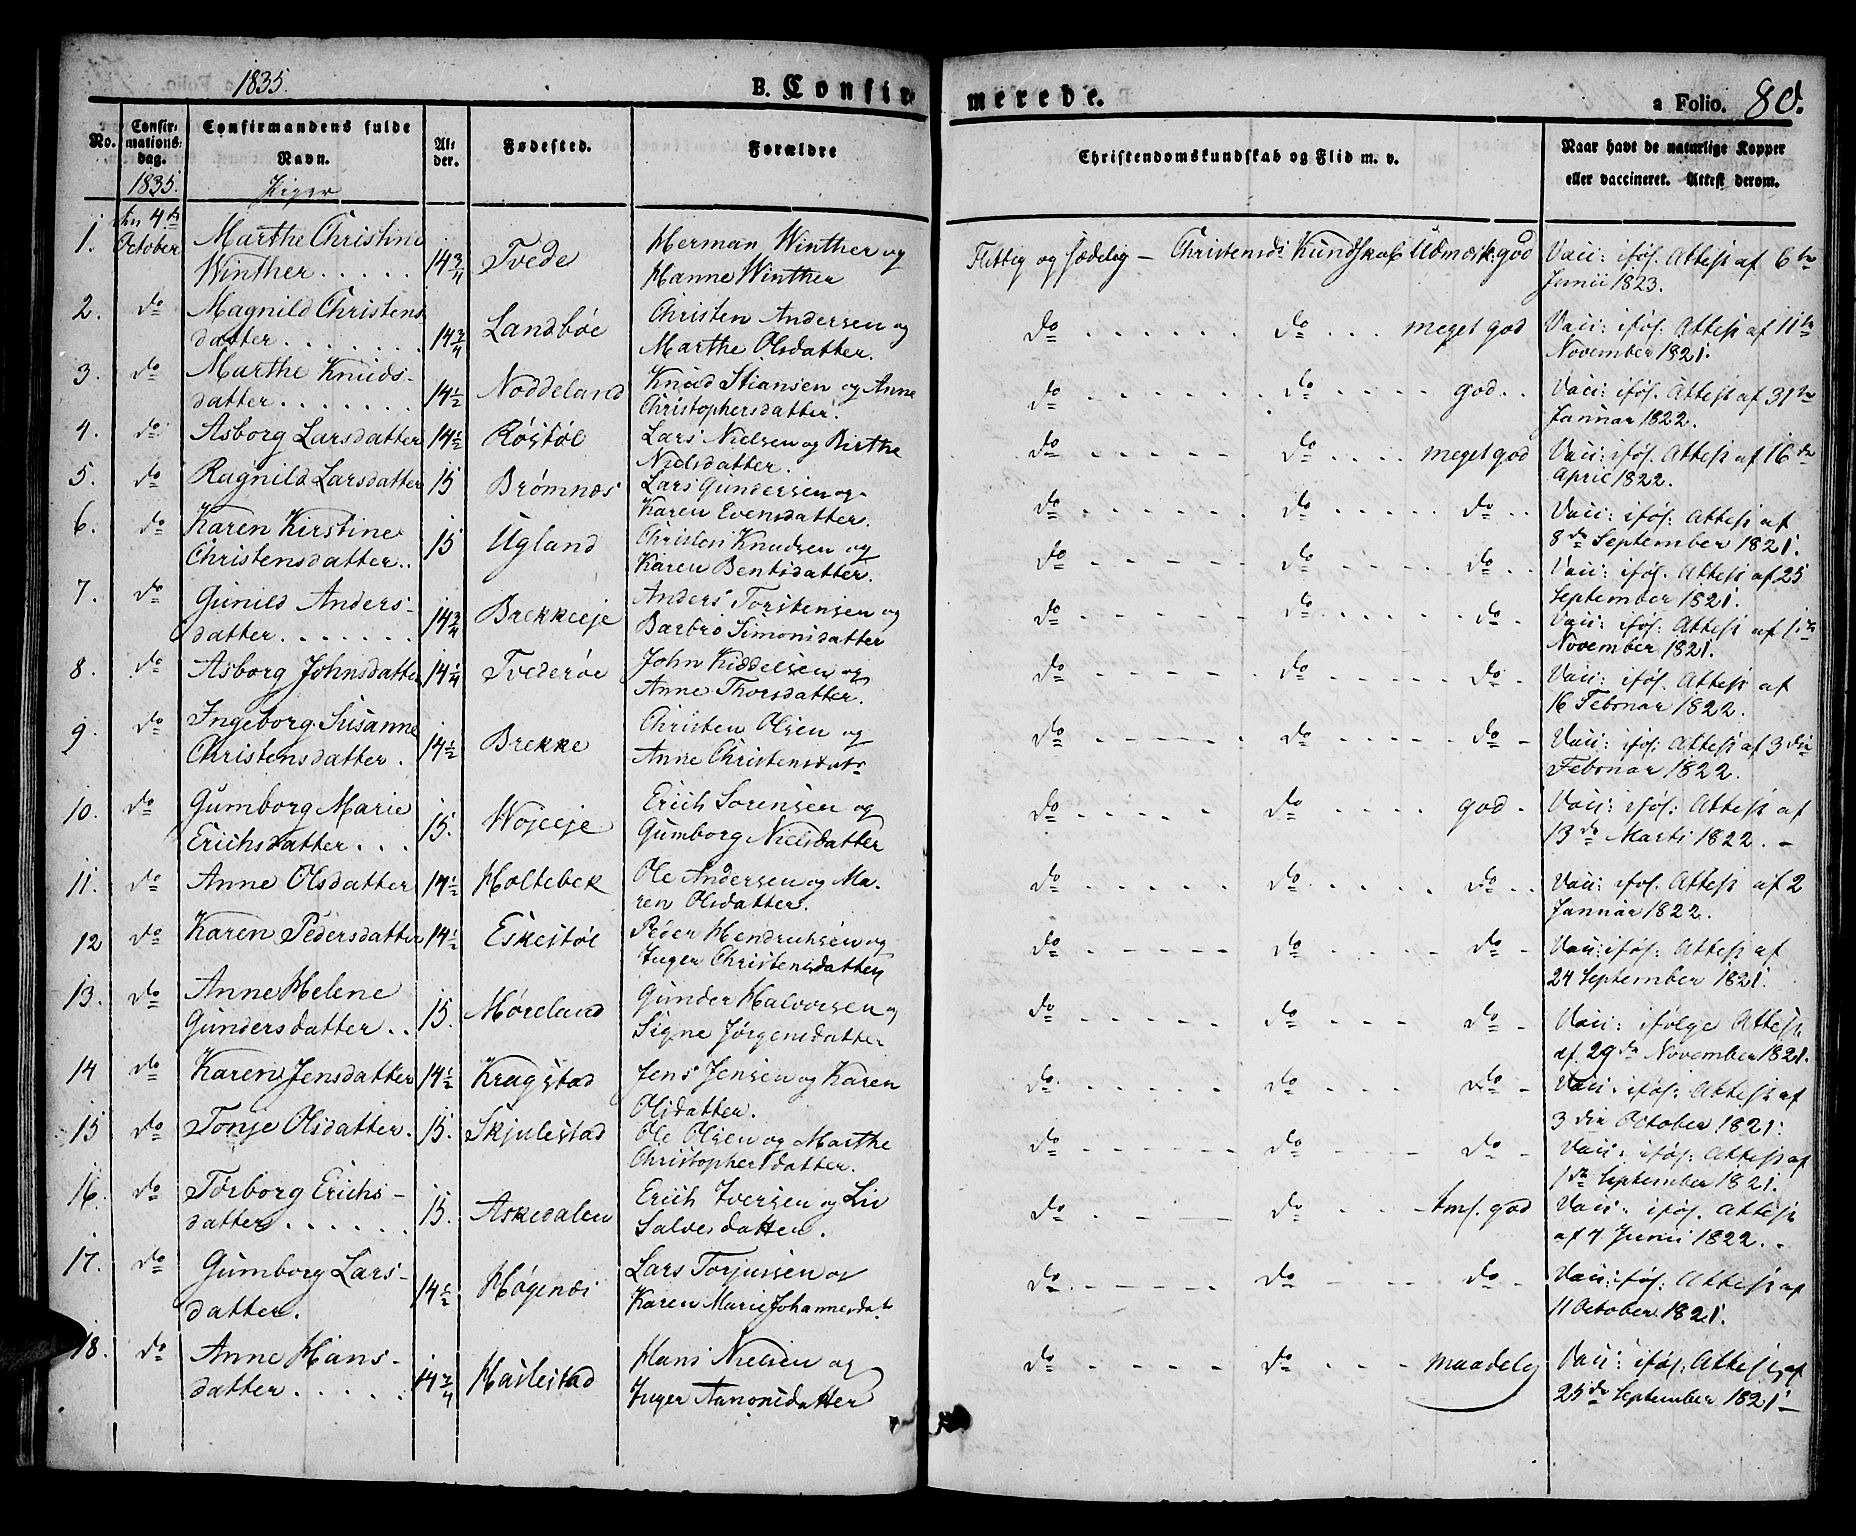 1835.
B. Confir-
merede.
a Folio. 80.
No.
Confir-
mations-
dag.
Confirmandens fulde
Navn.
Al-
der.
Fødested.
Forældre
Christendomskundskab og Flid m. v.
Naar havt de naturlige Kopper
eller vaccineret. Attest derom.
1835. Piger
1. den 4de October Marthe Christine Winther . . . . . 14 3/4 Tvede Herman Winther og Hanne Winther Flittig og sædelig — Christensd: Kundskab Udmærk: god Vacc: iføl: Attest af 6te Junii 1823.
2. do Magnild Christensdatter . . . . . . . 14 3/4 Landbøe Christen Andersen og Marthe Olsdatter. do do meget god Vacc: iføl: Attest af 11te November 1821.
3. do Marthe Knudsdatter . . . . . . . 14 1/2 Noddeland Knud Stiansen og Anne Christophersdatter. do do god Vacc: iføl: Attest af 31te Januar 1822.
4. do Asborg Larsdatter 14 1/2 Røstøl Lars Nielsen og Birthe Nielsdatter. do do meget god Vacc: iføl: Attest af 16de April 1822.
5. do Ragnild Larsdatter 15 Brømnæs Lars Gundersen og Karen Evensdatter. do do do Vacc: iføl: Attest af 8de September 1821.
6. do Karen Kirstine Christensdatter.. 15 Ugland Christen Knudsen og Karen Bentsdatter. do do do Vacc: iføl. Attest af 25 September 1821.
7. do Gunild Andersdatter . . . . . . . 14 3/4 Brekkeeje Anders Torstensen og Barbro Simonsdatter do do do Vacc: iføl: Attest af 1ste November 1821.
8. do Asborg Johnsdatter 14 1/4 Tvederøe John Kiddelsen og Anne Thorsdatter. do do do Vacc: iføl. Attest af 16 Februar 1822.
9. do Ingeborg Susanne Christensdatter. 14 1/2 Brekke Christen Olsen og Anne Christensdatr do do do Vacc: iføl: Attest af 3die Februar 1822.
10. do Gumborg Marie Erichsdatter . . . 15. Wojeeje Erich Sorensen og Gumborg Nielsdatter do do god Vacc: iføl: Attest af 13de Marti 1822. -
11. do Anne Olsdatter 14 1/2 Holtebek Ole Andersen og Maren Olsdatter. do do do Vacc: iføl. Attest af 2 Januar 1822.
12 do Karen Pedersdatter 14 1/2 Eskestøl Peder Hendrichsen og Inger Christensdatter do do do Vacc: iføl: Attest af 24 September 1821.
13. do Anne Helene Gundersdatter . . 15. Møreland Gunder Halvorsen og Signe Jørgensdatter do do do Vacc: ifølge Attest af 29de November 1821.
14 do Karen Jensdatter 14 1/2 Kragstad Jens Jensen og Karen Olsdatter. do do do Vacc: iføl: Attest af 3die October 1821.
15 do Tonje Olsdatter. 15. Skjulestad Ole Olsen og Marthe Christophersdatter. do do do Vacc: iføl: Attest af 1ste September 1821.
16. do Torborg Erichsdatter . . . . . . 15. Askedalen Erich Iversen og Liv Salvesdatter. do do tml. god Vacc: iføl. Attest af 7 Junii 1822. -
17. do Gumborg Larsdatter. 14 1/2 Høgenæs Lars Torjussen og Karen Marie Johannesdat. do do do Vacc: iføl: Attest af 11 October 1821.
18. do Anne Hansdatter . . . . . 14 3/4 Haslestad Hans Nielsen og Inger Aanonsdatter do do maadelig Vacc: iføl: Attest af 25de September 1821 —